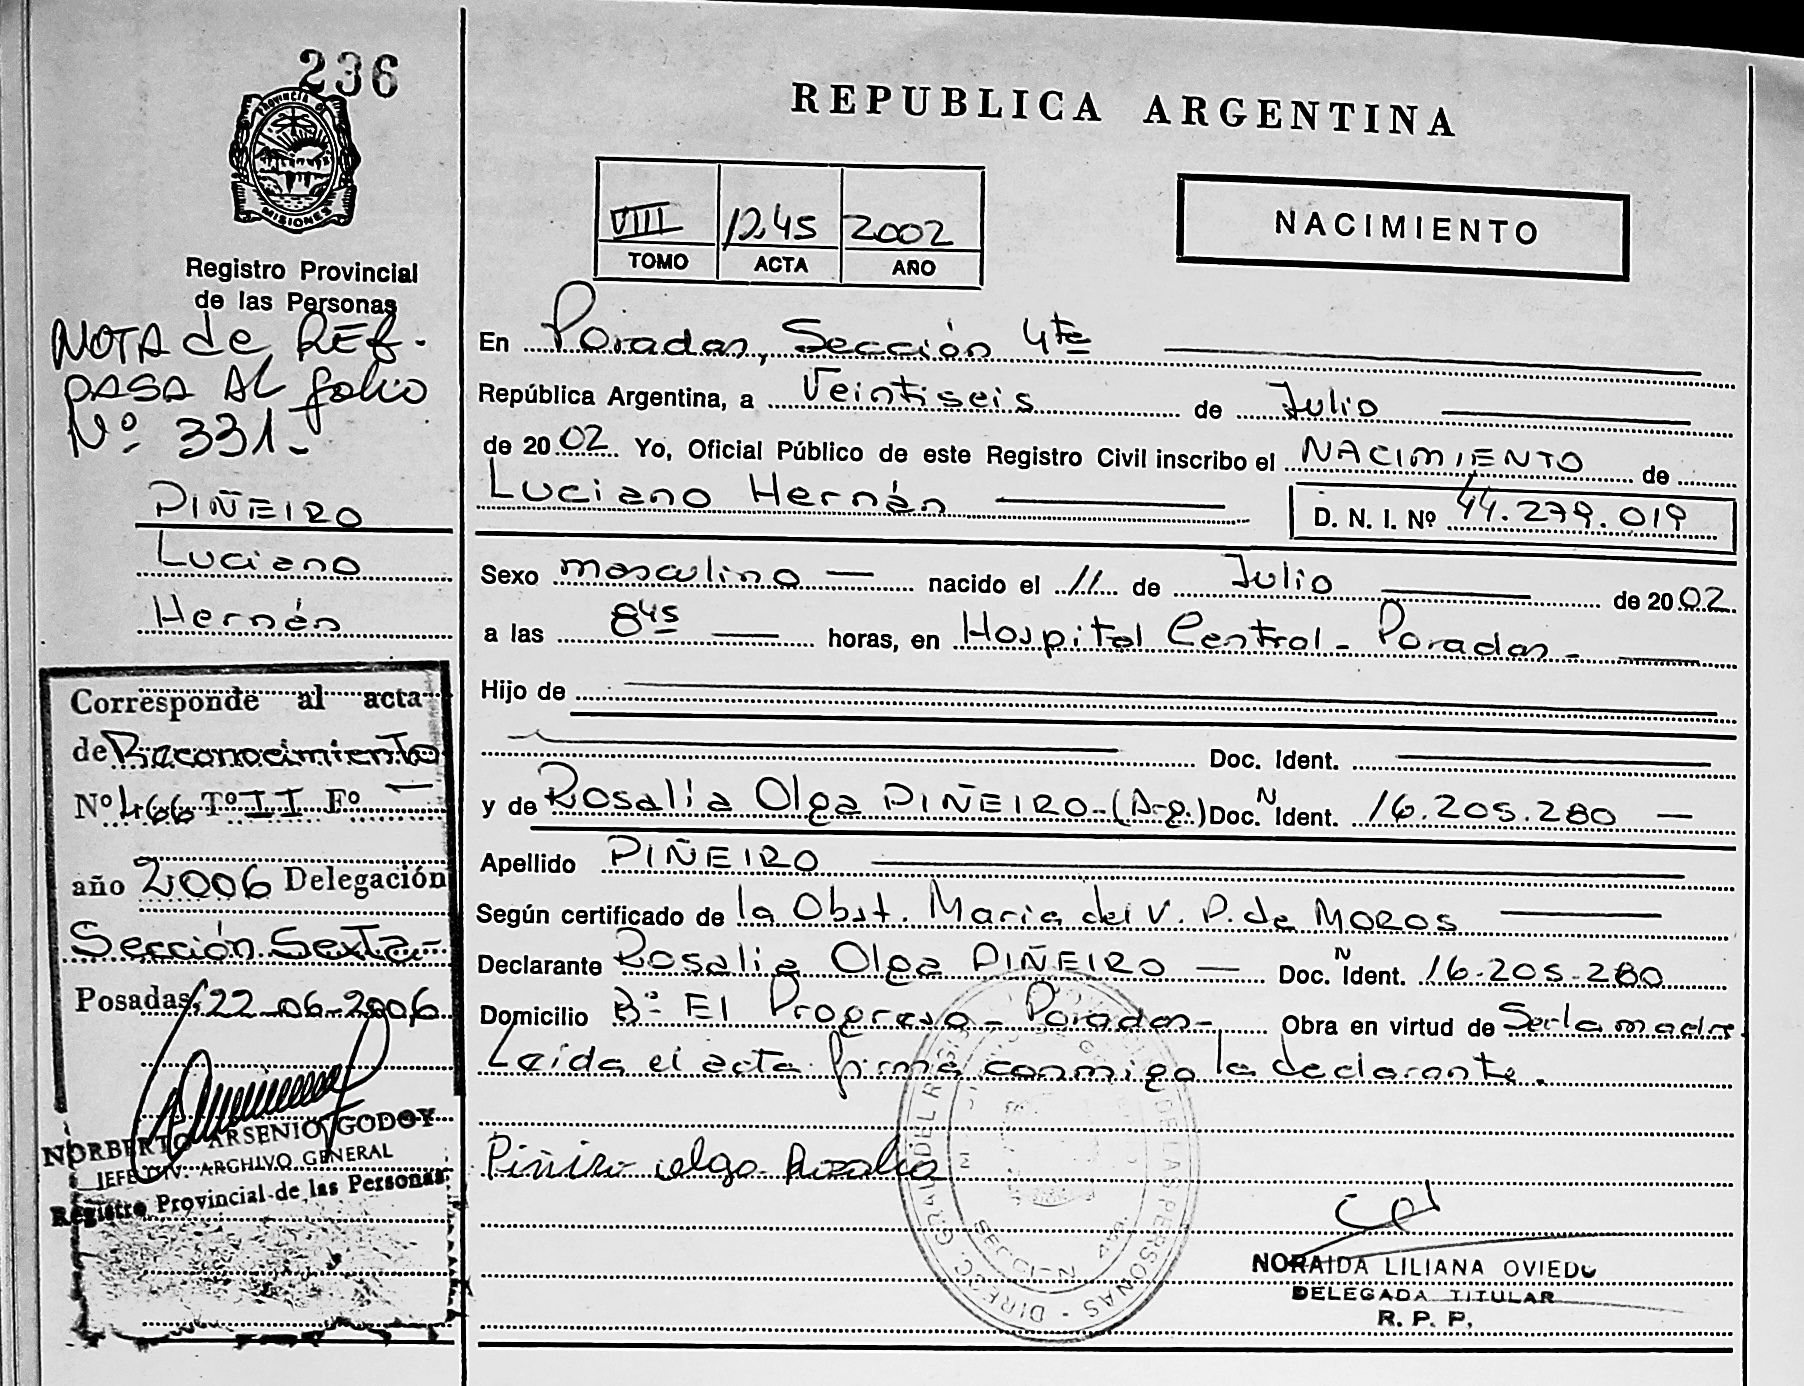 236
Provincia de
MISIONES
Registro Provincial
de las Personas
NOTA de REF-
PASA AL folio
Nº 331.-
PIÑEIRO
Luciano
Hernán
Corresponde al acta
de Reconocimiento
Nº 466 Tº II Fº —
año 2006 Delegación
Sección Sexta.-
Posadas, 22-06-2006
NORBERTO ARSENIO GODOY
JEFE DIV. ARCHIVO GENERAL
Registro Provincial de las Personas
REPUBLICA ARGENTINA
VIII 1245 2002
TOMO ACTA AÑO
NACIMIENTO
En Posadas, Sección 4ta
República Argentina, a Veintiseis de Julio
de 2002 Yo, Oficial Público de este Registro Civil inscribo el NACIMIENTO de
Luciano Hernán D. N. I. Nº 44.279.019
Sexo masculino — nacido el 11 de Julio de 2002
a las 8 45 — horas, en Hospital Central - Posadas -
Hijo de
Doc. Ident.
y de Rosalia Olga PIÑEIRO-(Arg.) Doc. N Ident. 16.205.280 —
Apellido PIÑEIRO
Según certificado de la Obst. Maria del V. P. de MOROS
Declarante Rosalia Olga PIÑEIRO — Doc. N Ident. 16.205.280
Domicilio Bº El Progreso - Posadas - Obra en virtud de Ser la madre.
Leida el acta firma conmigo la declarante.
Piñeiro olga Rosalia
DIREC. GRAL. DEL REGISTRO DE LAS PERSONAS
SECCION 4ta.
NORAIDA LILIANA OVIEDO
DELEGADA TITULAR
R. P. P.